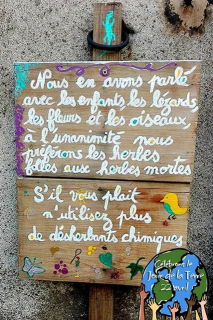 Nous en avons parlé
avec les enfants, les lézards,
les fleurs et les oiseaux
à l'unanimité nous
préférons les herbes
folles aux herbes mortes
S'il vous plaît
n'utilisez plus
de désherbants chimiques
Célébrant le
Jour de la Terre
22 avril